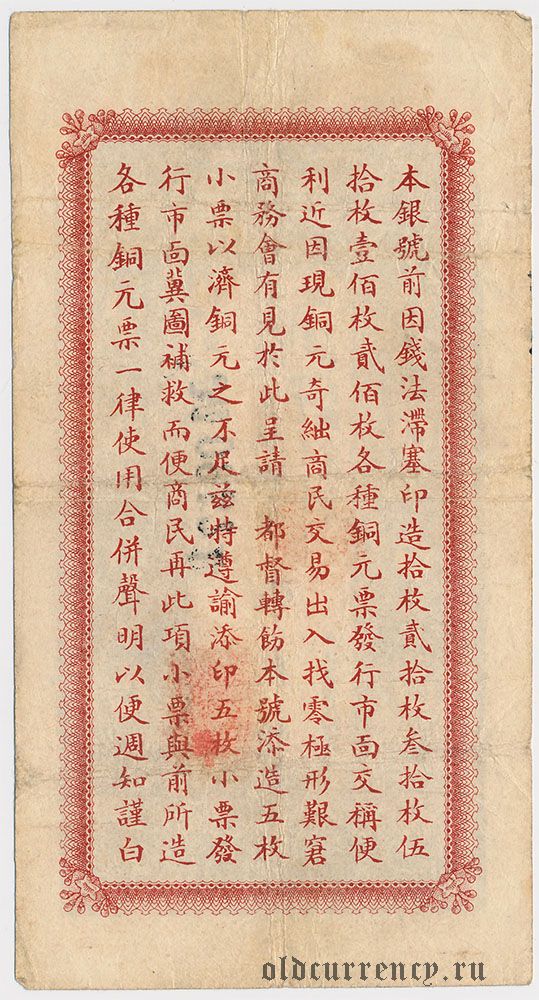 本銀號前因錢法滯塞印造拾枚貳拾枚叁拾枚伍
拾枚壹佰枚貳佰枚各種銅元票發行市面交稱便
利近因現銅元奇絀商民交易出入找零極形艱窘
商務會有見於此呈請 都督轉飭本號添造五枚
小票以濟銅元之不足茲特遵諭添印五枚小票發
行市面冀圖補救而便商民再此項小票與前所造
各種銅元票一律使用合併聲明以便週知謹白
oldcurrency.ru